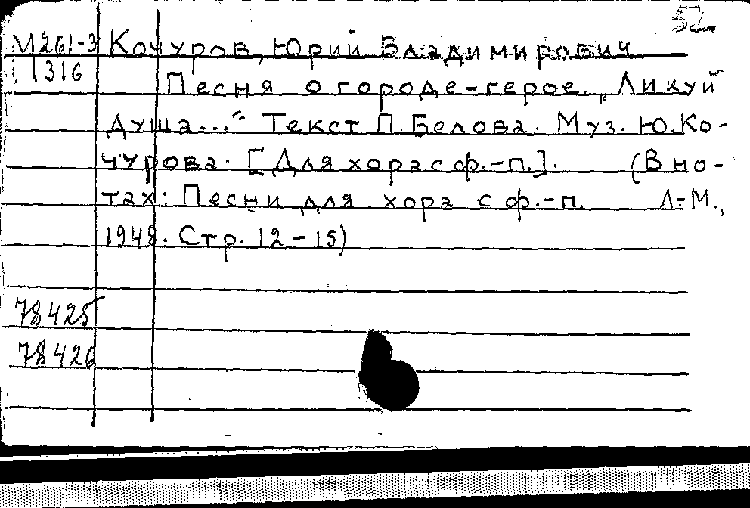 52
М261-3 Кочуров, Юрий Владимирович
1316 Песня о городе-герое. "Ликуй
душа..." Текст П. Белова. Муз. Ю. Ко-
чурова. [Для хора с ф.-п.]. (В но-
тах: Песни для хора с ф.-п. Л-М.,
1948. Стр. 12-15)
78425
78426